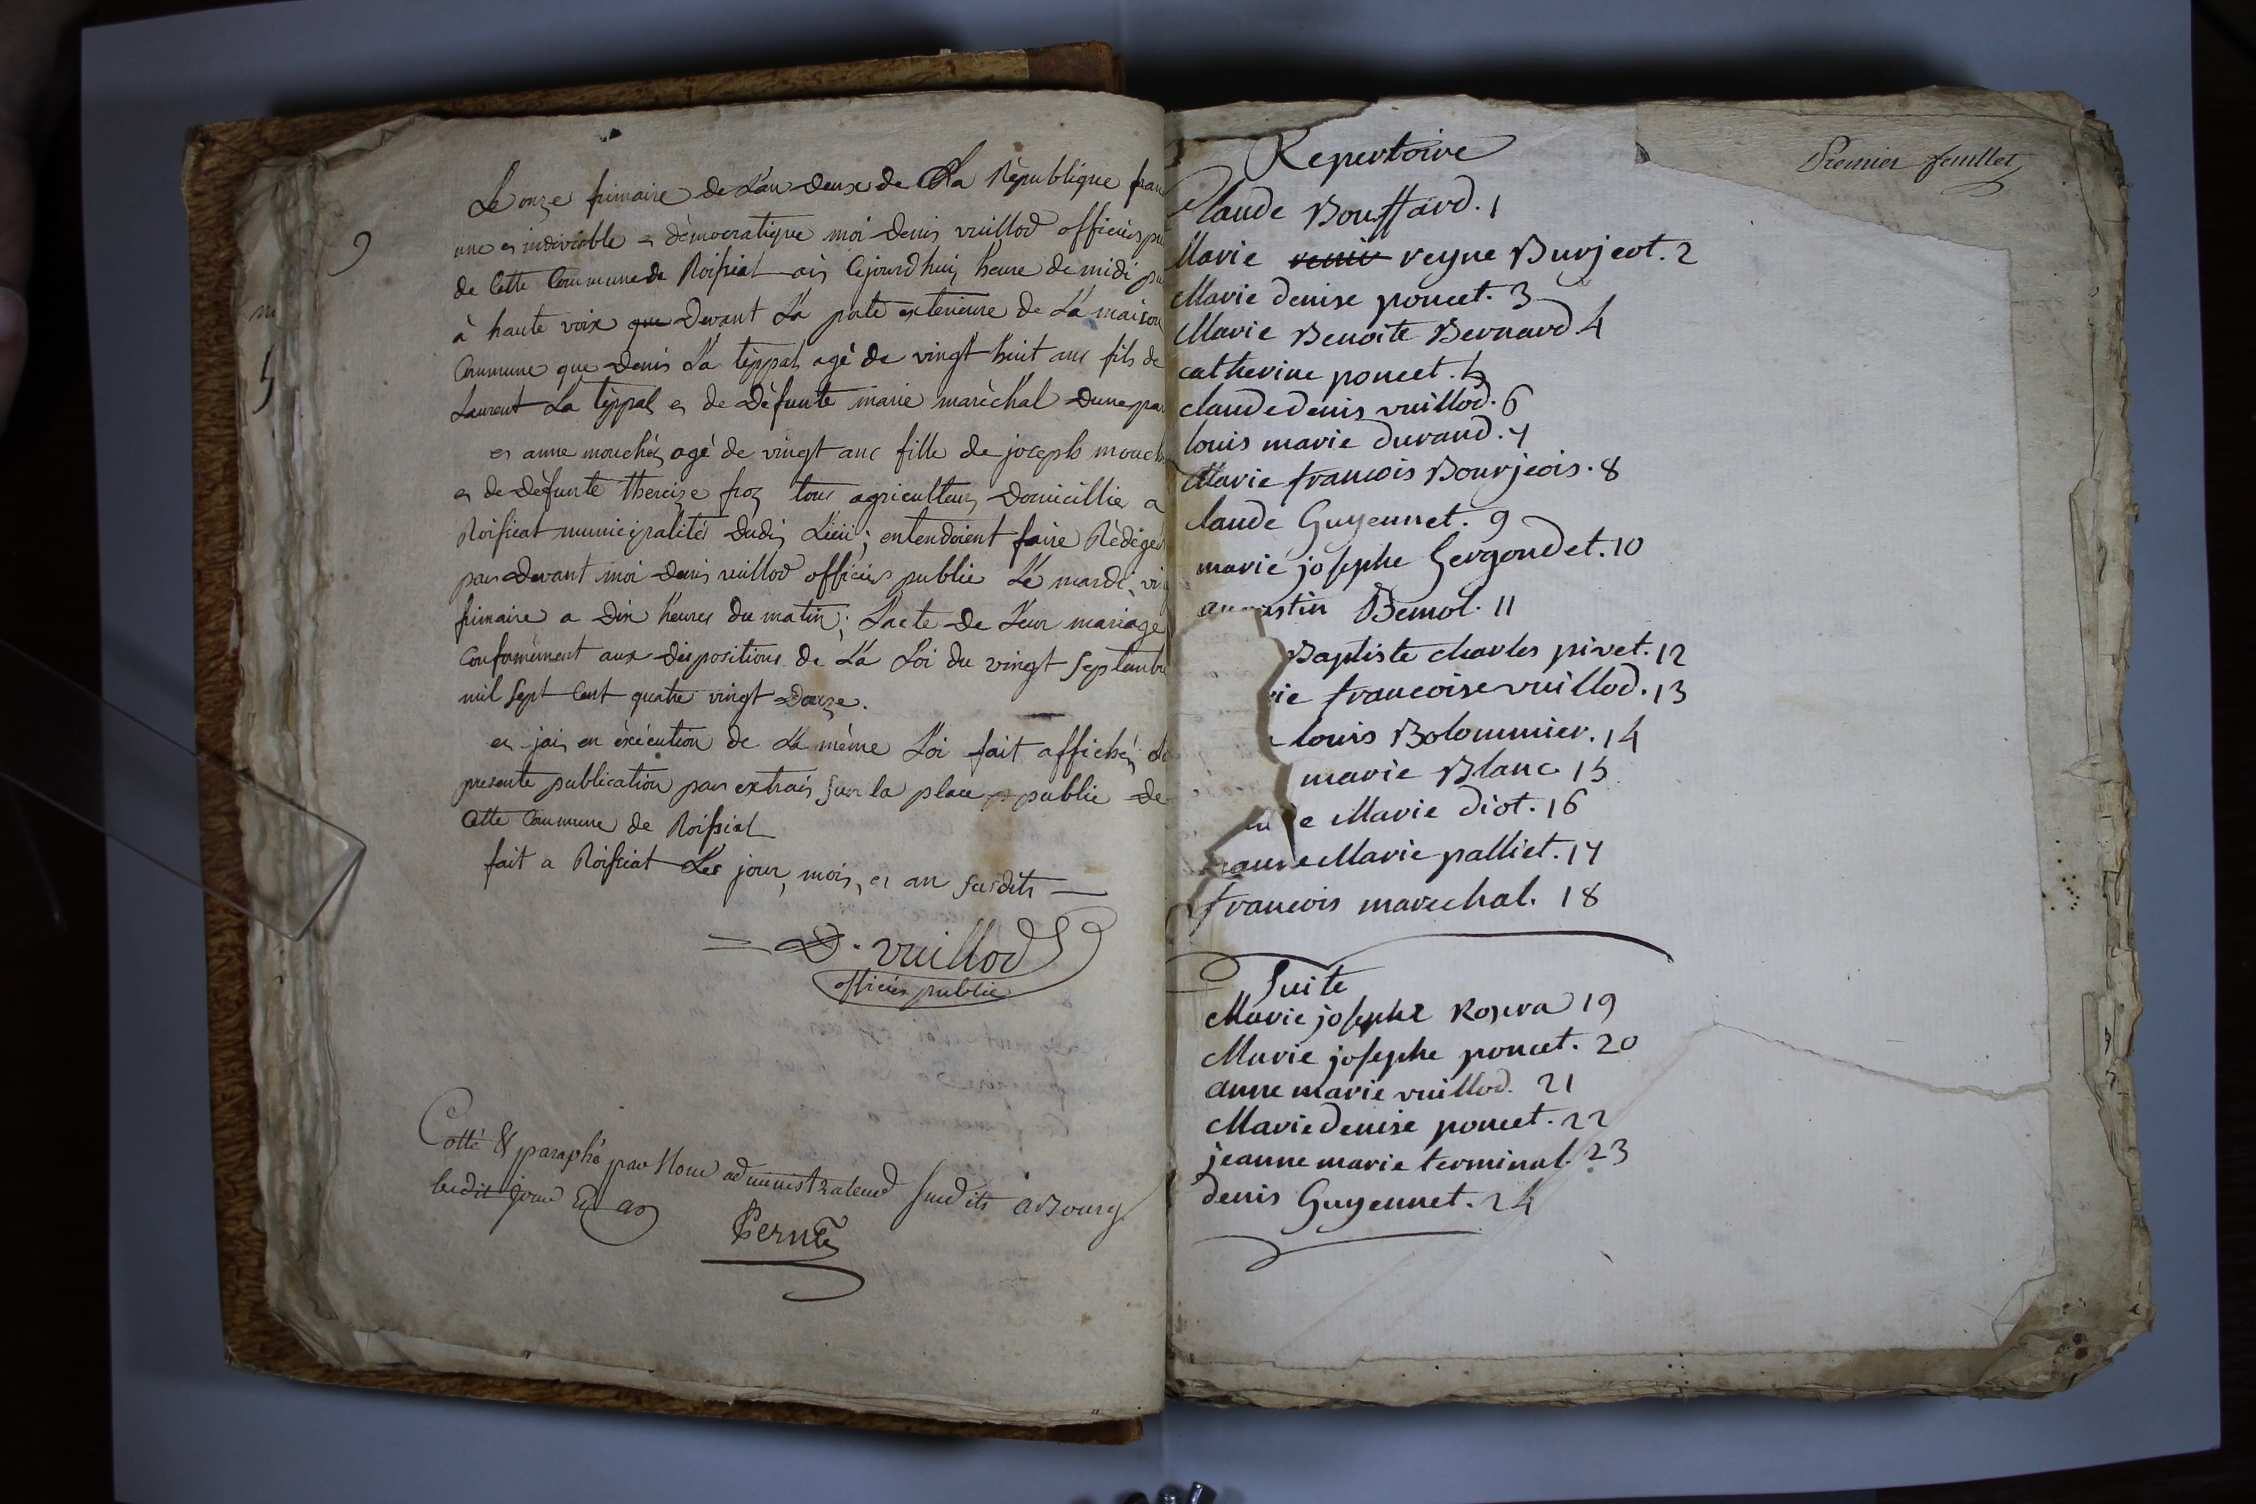 Le onze frimaire de l'an deux de la République fran
une et indivisible et démocratique moi Denis vuillod officier pu
de cette Commune de Roissiat ais cejourd'huis heure de midi pu
à haute voix que devant La porte exterieure de La maison
Commune que Denis La teppas agé de vingt huit ans fils de
Laurent La teppas et de défunte marie maréchal dune par
et anne mouchés agé de vingt ans fille de joseph mouch
et de défunte thereize froz tous agriculteurs domicillie a
Roissiat municipalités dudis Lieu ; entendoient faire Rédiger
par devant moi denis vuillod officier public Le mardi vi
frimaire a dix heures du matin ; L'acte de Leur mariage
Conformément aux dispositions de La Loi du vingt septembre
mil sept cent quatre vingt douze.
et jais en éxécution de La même Loi fait affichés La
presente publication par extrais sur la place public de
Cette Commune de Roissiat
fait a Roissiat Les jour, mois, et an susdits
D. vuillod
officier public
Cotté & paraphé par Nous administrateur susdits a Bourg
ledit jour & an
9
Premier feuillet
Repertoire
Claude Bouffard. 1
Marie reyne Burjeot. 2
Marie denise poncet. 3
Marie Benoite Bernard 4
catherine poncet. 5
claude denis vuillod. 6
louis marie durand. 7
Marie francois Bourjeois. 8
laude Guyennet. 9
marie josephe Gergondet. 10
au stin Bemol. 11
Baptiste charles pivet. 12
rie francoise vuillod. 13
louis Bolommier. 14
marie Blanc 15
e Marie diot. 16
anne Marie palliet. 17
francois marechal. 18
Suite
Marie josephe 19
Marie josephe poncet. 20
anne marie vuillod. 21
Marie denise poncet. 22
jeanne marie terminal. 23
denis Guyennet. 24